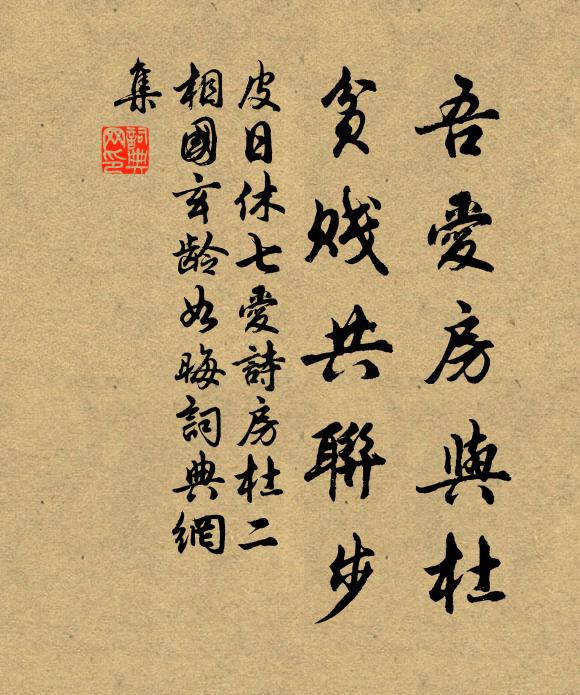 吾愛房與杜
貧賤共聯步
皮日休七愛詩房杜二
相國玄齡如晦詞典網
集
詞典
网印